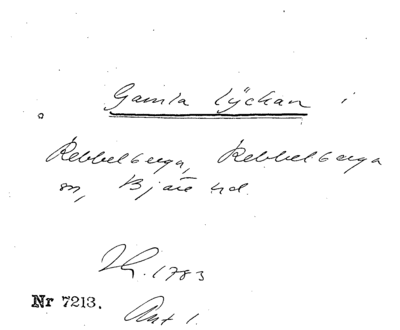 Gamla lÿckan i
Rebbelberga, Rebbelberga
sn, Bjäre hd.
1783
Nr 7213.
Akt 1.